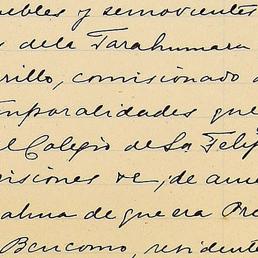 uebles y semovientes
s dela Tarahumara
rrillo, comisionado
mporalidades que
el Colegio de Sn Felip
misiones &c; de ame
alma de que era Pre
Bencomo, residente